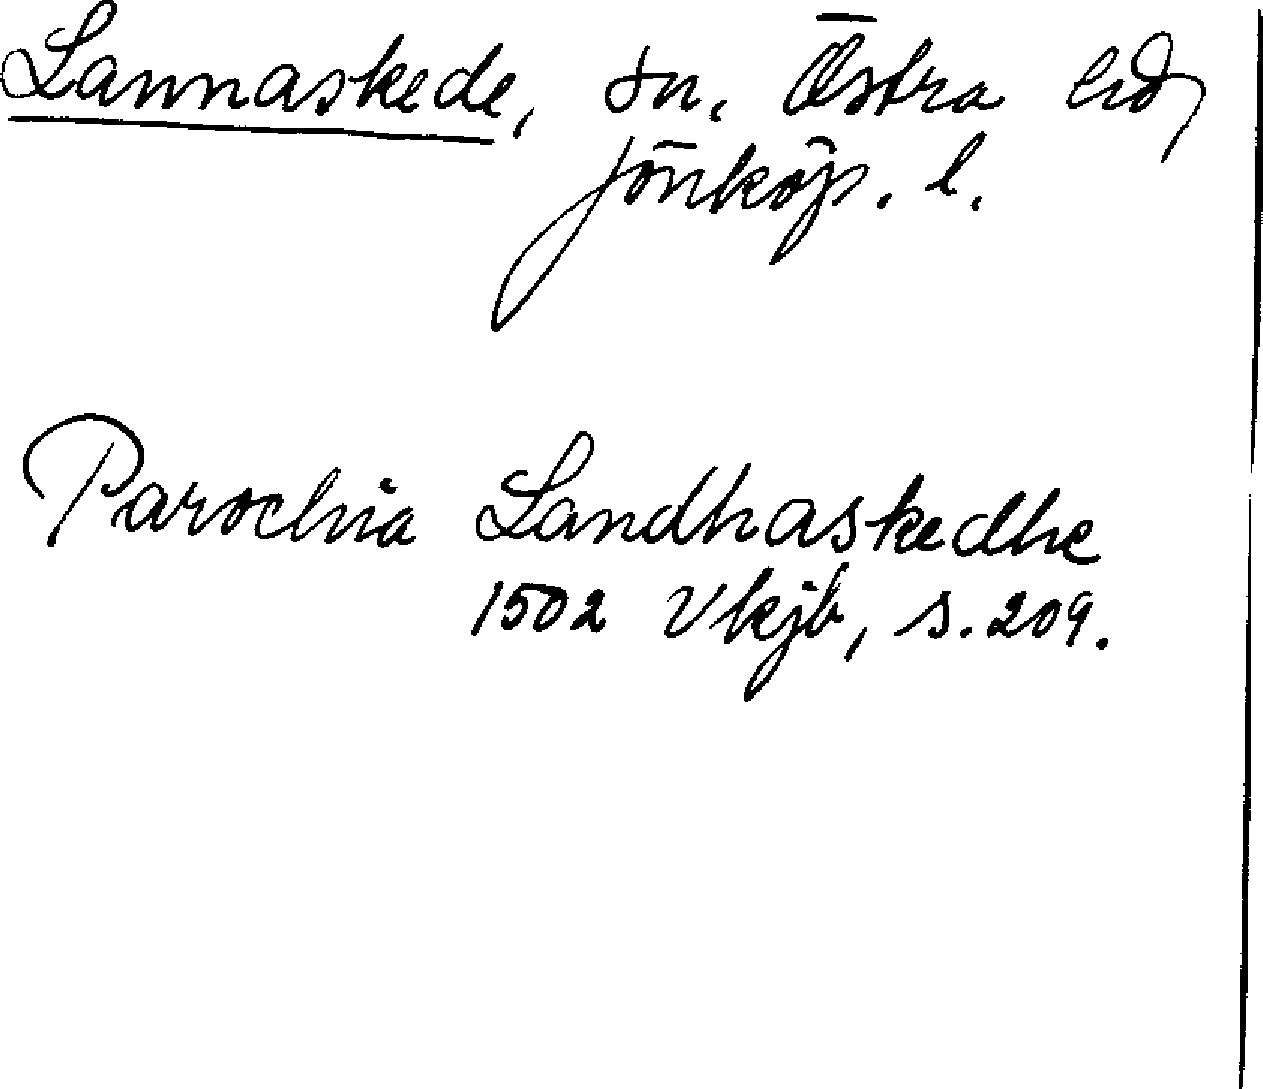 Lannaskede, sn. Östra hd,
Jönköp. l.
Parochia Landhaskedhe
1502 Vkjb, s. 209.